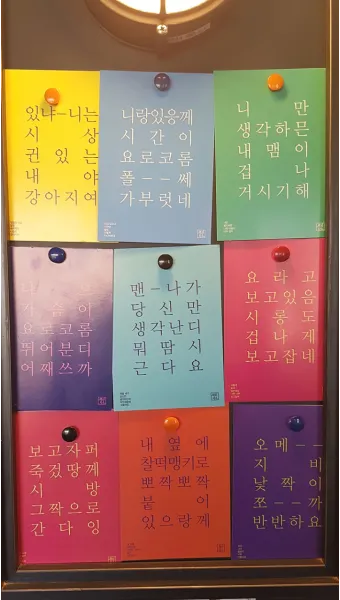 있냐-니는
시 상
귄 있 는
내 야
강아지여
니랑있응께
시 간 이
요로코롬
폴--쎄
가부럿네
니 만
생각하믄
내 맴 이
겁 나
거시기해
요로코롬
뛰어분디
어째쓰까
맨-나가
당 신 만
생각난디
뭐 땀 시
근 다 요
요 라 고
보고있음
시 롱 도
겁 나 게
보고잡네
보고자퍼
죽겄땅께
시 방
그짝으로
간 다 잉
내 옆 에
찰떡맹키로
뽀짝뽀짝
붙 이
있으랑께
오메--
지 비
낯 짝 이
쪼--까
반반하요